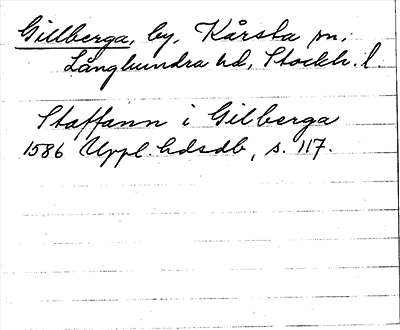 Gillberga, by, Kårsta sn,
Långhundra hd, Stockh. l.
Staffann i Gilberga
1586 Uppl. hdsdb, s. 117.